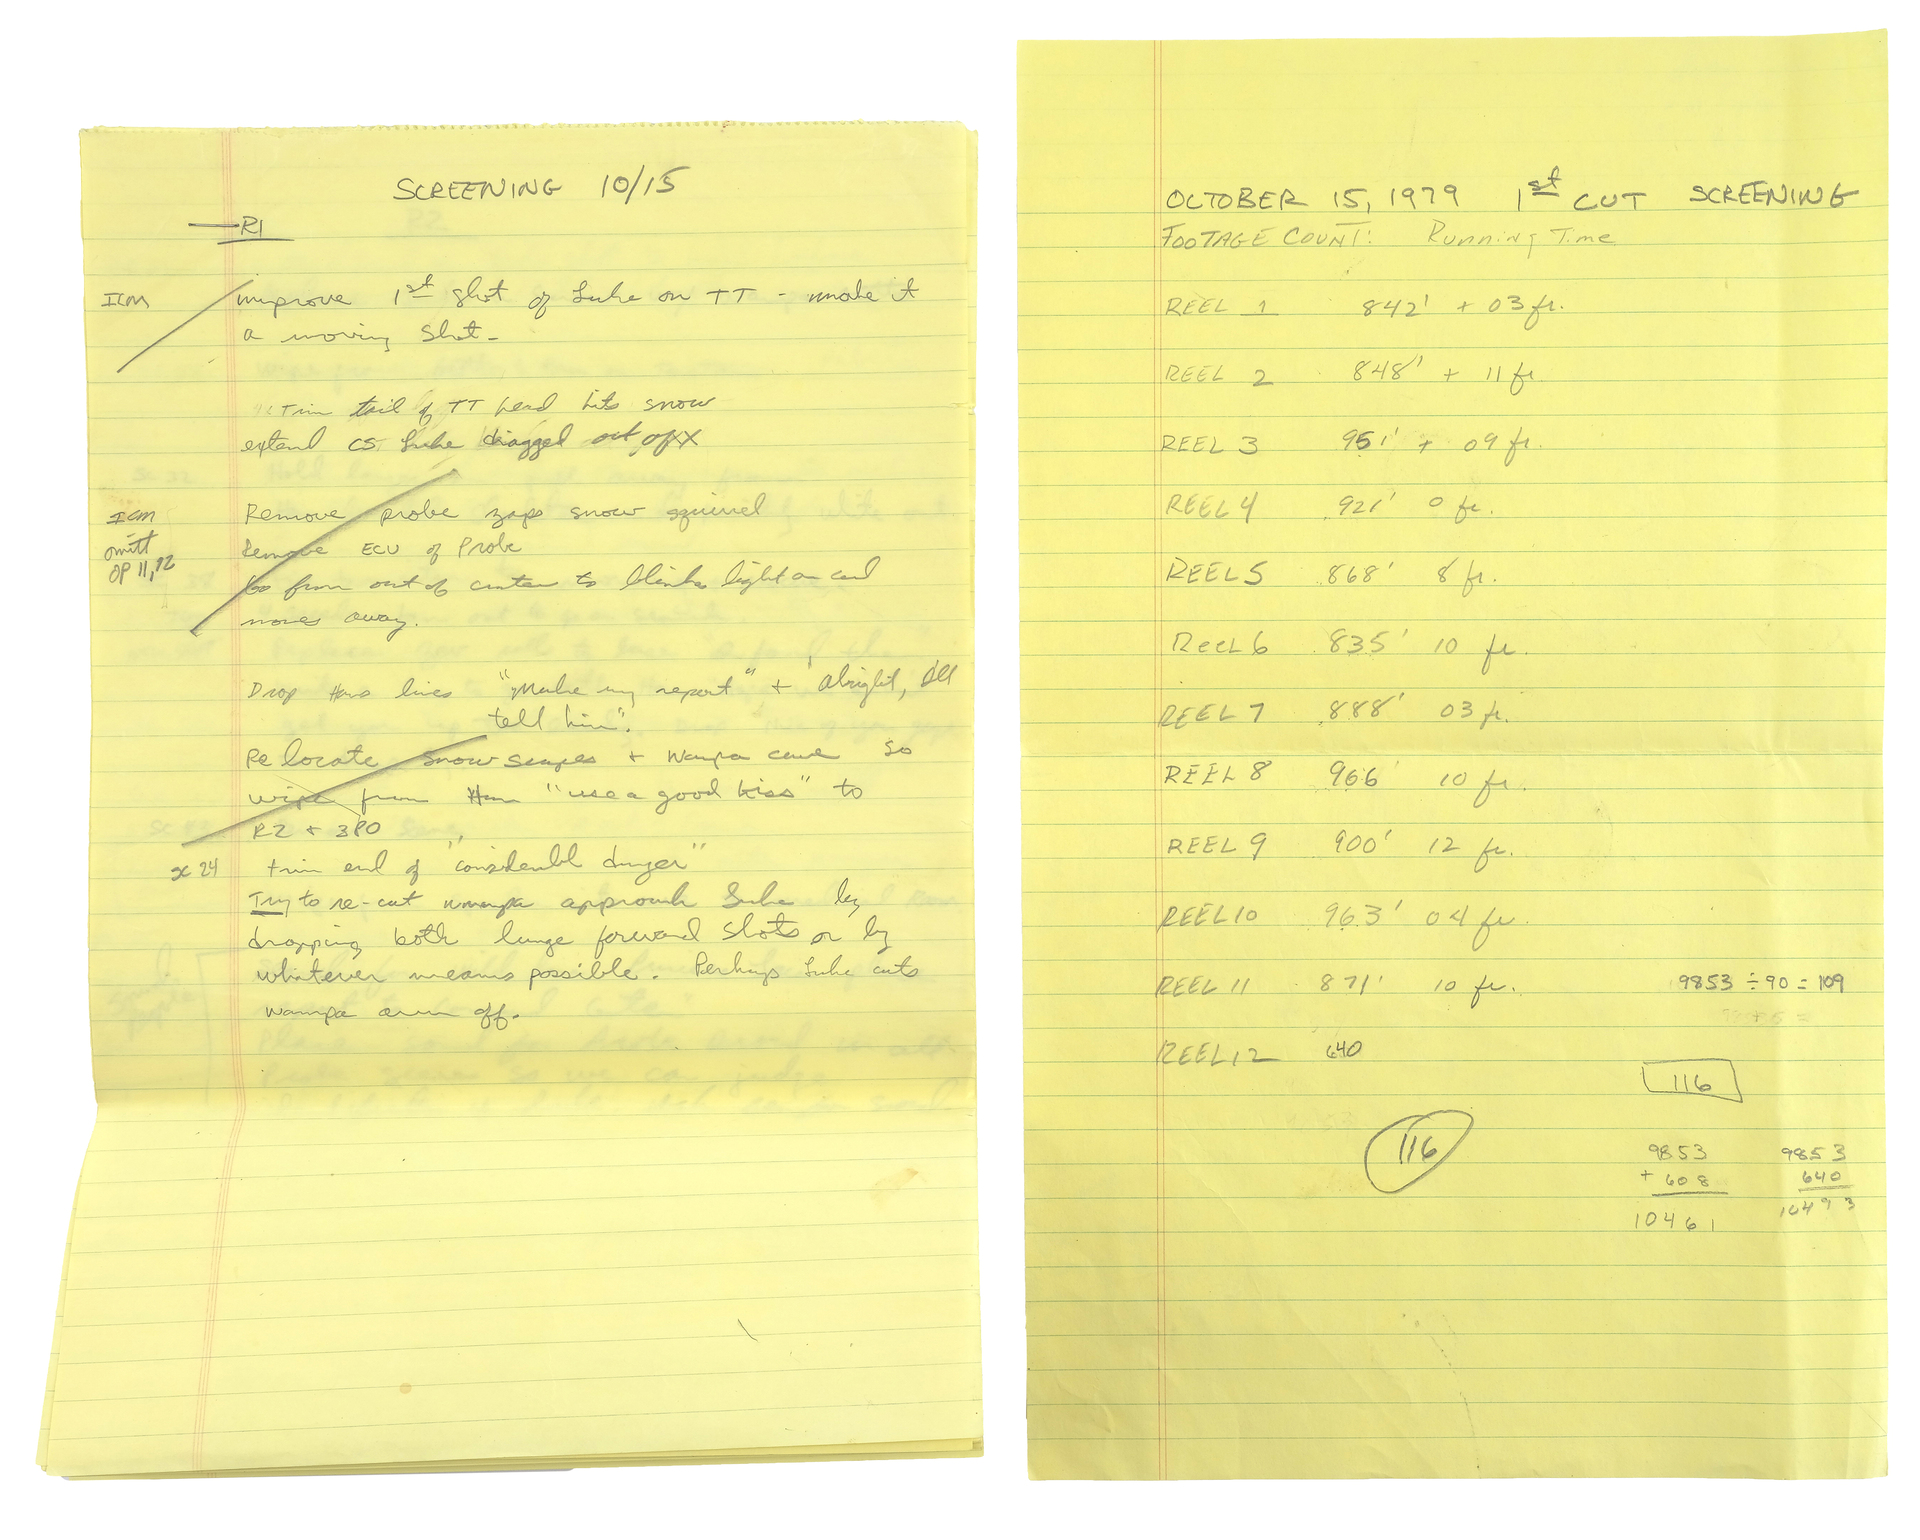 SCREENING 10/15
R1
ILM improve 1st shot of Luke on TT - make it
a moving shot -
Trim tail of TT head hits snow
extend CS Luke dragged out of X
ILM Remove probe zaps snow squirrel
omitt Remove ECU of Probe
OP 11, 12 Go from out of crater to blinks light on and
moves away.
Drop Hans lines "Make my report" + "Alright, I'll
tell him".
Relocate snowscapes + Wampa cave so
wipe from Han "use a good kiss" to
R2 + 3PO
sc 24 trim end of "considerabl danger"
Try to re-cut wampa approach Luke by
dropping both lunge forward shots or by
whatever means possible. Perhaps Luke cuts
wampa arm off.
OCTOBER 15, 1979 1st CUT SCREENING
FOOTAGE COUNT: Running Time
REEL 1 842' + 03 fr.
REEL 2 848' + 11 fr
REEL 3 951' + 09 fr.
REEL 4 921' 0 fr.
REEL 5 868' 8 fr.
Reel 6 835' 10 fr.
REEL 7 888' 03 fr.
REEL 8 966' 10 fr.
REEL 9 900' 12 fr.
REEL 10 963' 04 fr.
REEL 11 871' 10 fr. 9853 ÷ 90 = 109
REEL 12 640
116
116
9853 9853
+ 608 640
10461 10493